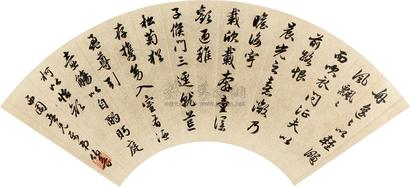 舟遙遙以輕颺
風飄飄
而吹衣問征夫以
前路恨
晨光之熹微乃
瞻衡宇
載欣載奔僮僕
歡迎稚
子候門三逕就荒
松菊猶
存攜幼入室有酒
盈尊引
壺觴以自酌眄庭
柯以怡顏